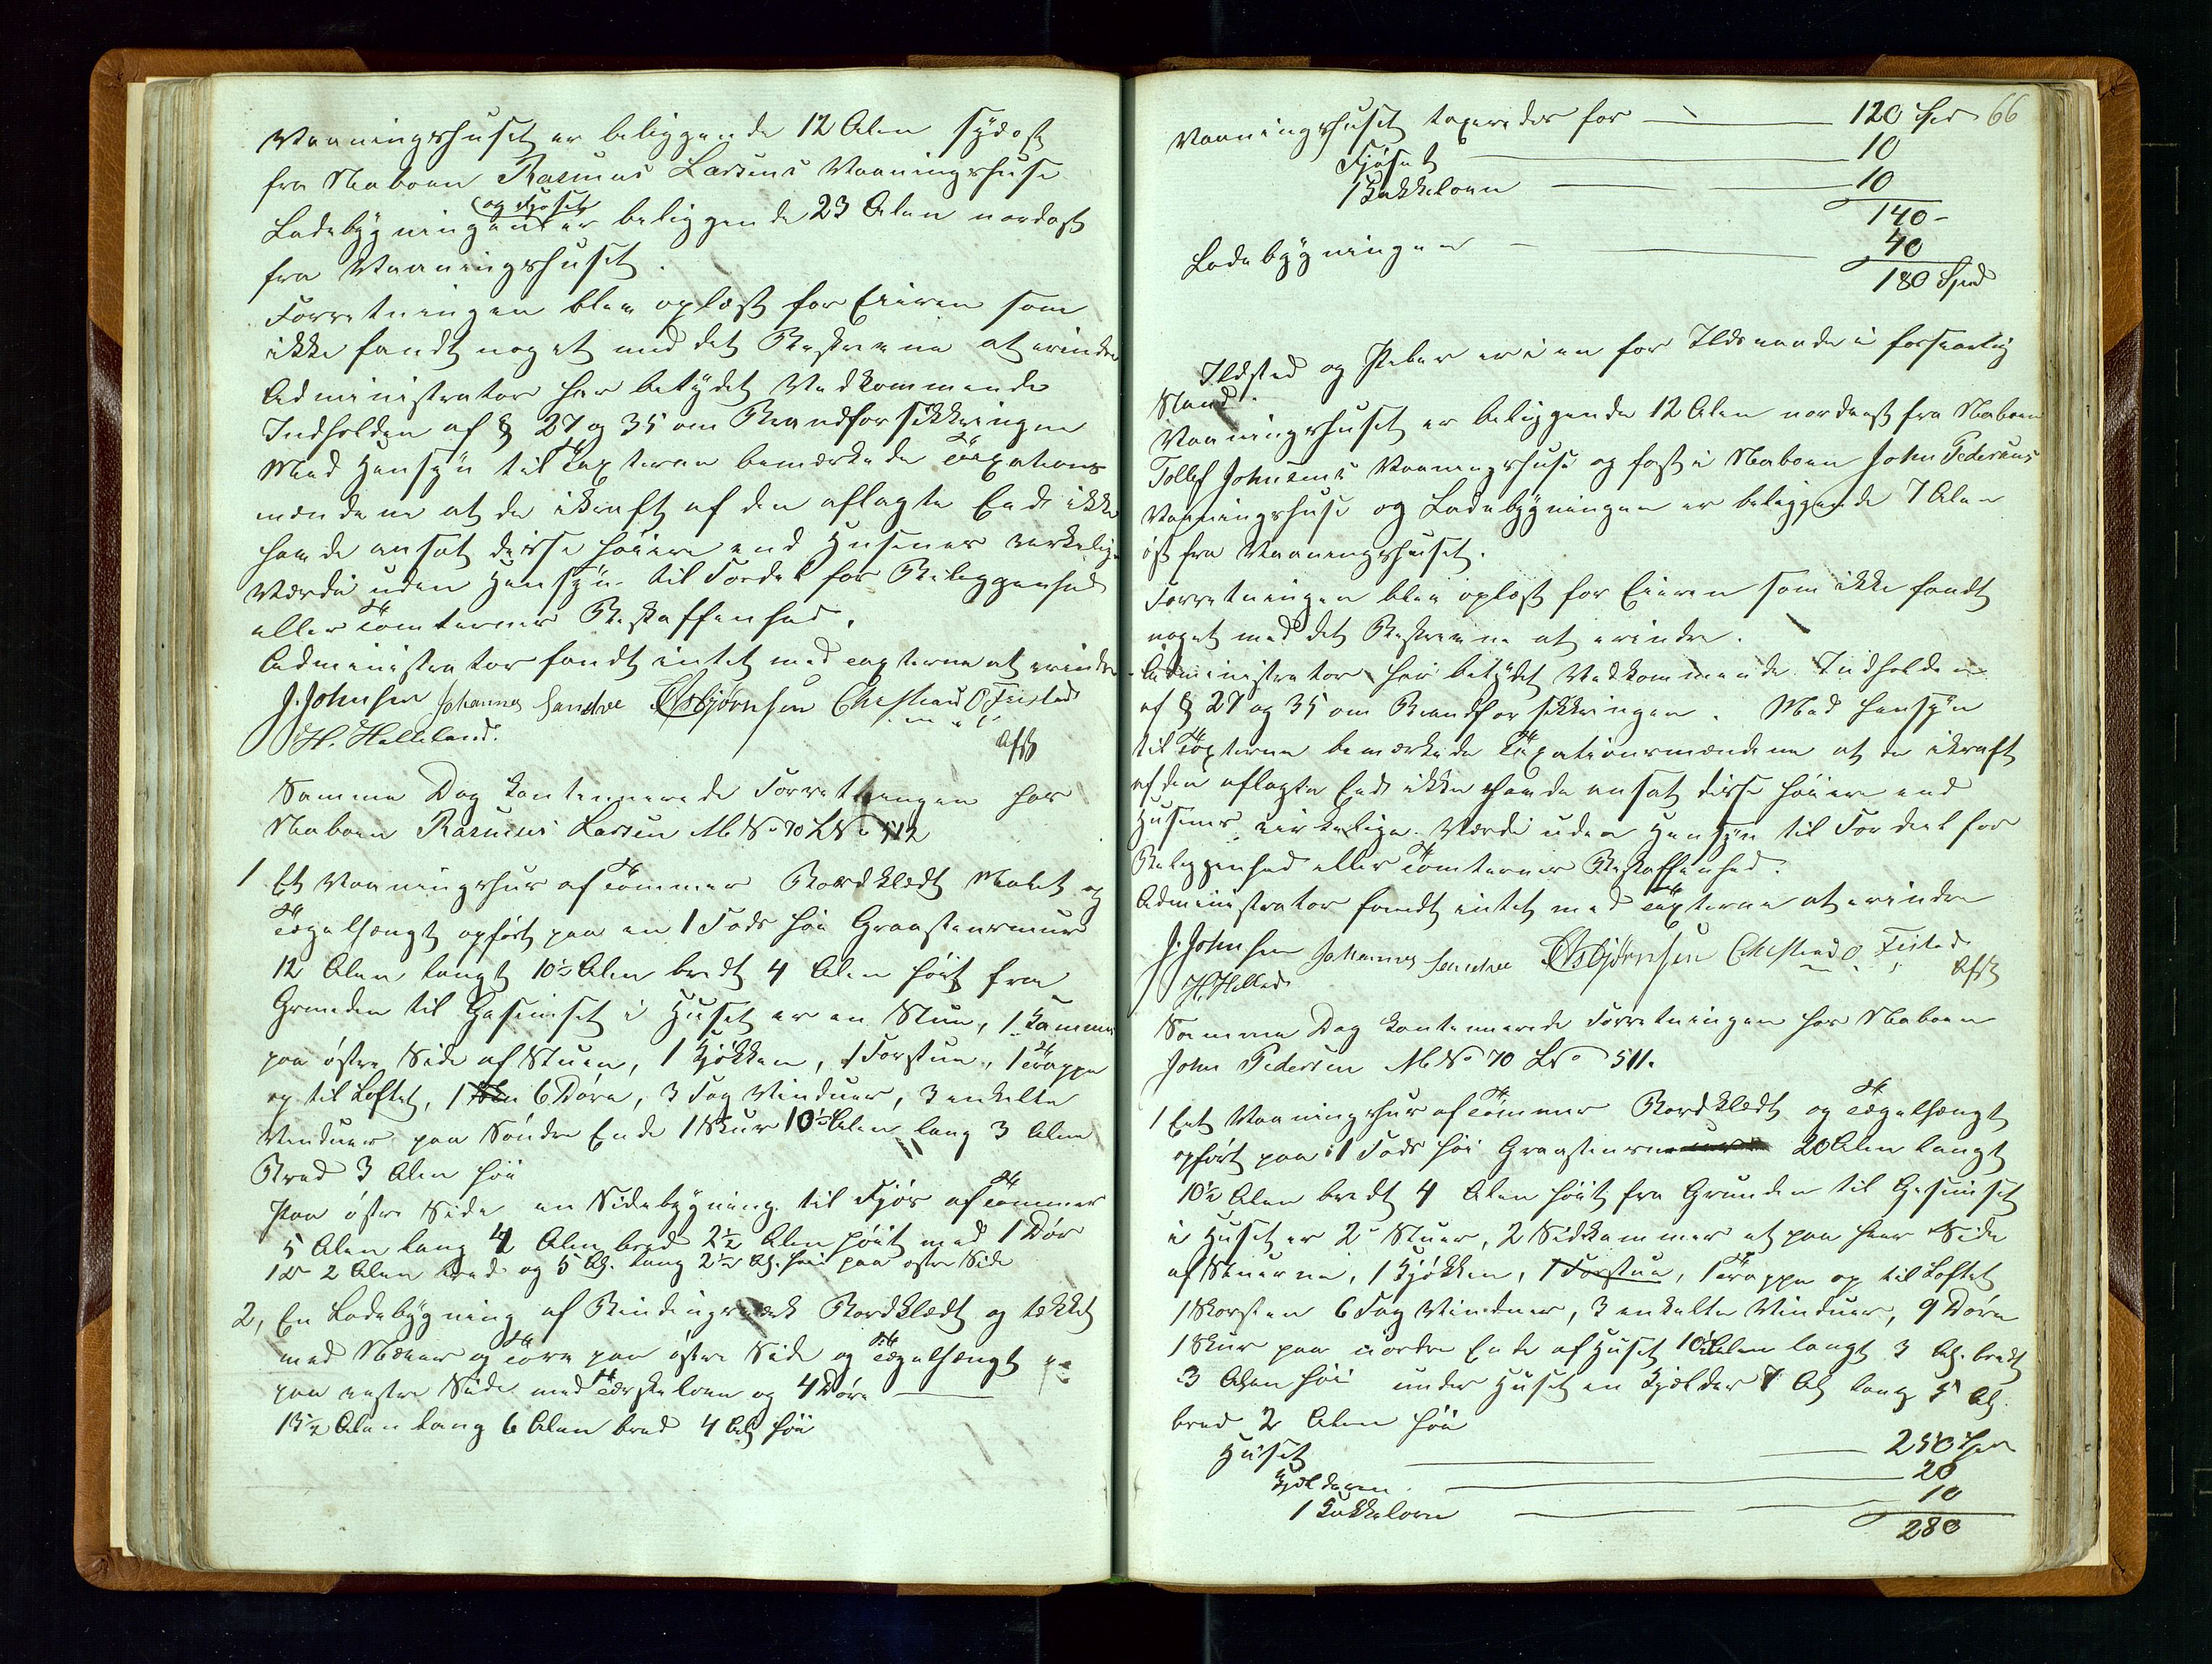 Vaaningshuset er beliggende 12 Alen sydost
fra Naboen Rasmus Larsens Vaaningshuse
(og Fjøset
Ladebygningen er beliggende 23 Alen nordost
fra Vaaningshuset.
Forretningen blev oplæst for Eieren som
ikke fandt noget med det Beskrevne at erindre
Administrator har betydet Vedkommende
Indholden af § 27 og 35 om Brandforsikkringen
Med Hensyn til Taxterne bemærkede Taxations
mændene at de ikraft af den aflagte Eed ikke
havde ansat disse høiere end Husenes verkelige
Værdi uden Hensyn til Fordel for Beleggenhed
eller Tomternes Beskaffenhed.
Administrator fandt intet med Taxterne at erindre
J. Johnsen Johannes Sandve Asbjørnsen Christian O Tristad
H. Helleland. Afsk
Samme Dag kontinuerede Forretningen hos
Naboen Rasmus Larsen M No 70 L No 512
1 Et Vaaningshus af Tømmer Bordklædt Malet og
Tægelhængt opført paa en 1 Fods høi Graasteensmuur
12 Alen langt 10½ Alen bredt 4 Alen høit fra
Grunden til Gesimset i Huset er en Stue, 1 Kammer
paa østre Side af Stuen, 1 Kjøkken, 1 Forstue, 1 Trappe
op til Loftet, 1 6 Døre, 3 Fag Vinduer, 3 enkelte
Vinduer paa Søndre Ende 1 Skur 10½ Alen lang 3 Alen
Bred 3 Alen høi
Paa østre Side en Sidebygning til Fjøs af Tømmer
5 Alen lang 4 Alen bred 2½ Alen høit med 1 Dør
1 Do 2 Alen bred og 5 Al. lang 2½ Al. høi paa østre Side
2, En Ladebygning af Bindingsverk Bordklædt og tækket
med Næver og Torv paa østre Side og Tægelhængt
paa vestre Side med Tærskeloen og 4 Døre
15½ Alen lang 6 Alen bred 4 Al høi
66
Vaaningshuset taxeredes for 120 Spd
Fjøset 10
1 Kakkelovn 10
140-
Ladebygningen 40
180 Spd
Ildsted og Piber er i en for Ildsvaade i forsvarlig
Stand.
Vaaningshuset er beliggende 12 Alen nordvest fra Naboen
Tollef Johnsens Vaaningshuse og fast i Naboen John Pedersens
Vaaningshuse og Ladebygningen er beliggende 7 Alen
øst fra Vaaningshuset.
Forretningen blev oplæst for Eieren som ikke fandt
noget med det Beskrevne at erindre.
Administrator har betydet Vedkommende Indholden
af § 27 og 35 om Brandforsikkringen. Med Hensyn
til Taxterne bemærkede Taxationsmændene at de ikraft
af den aflagte Eed ikke havde ansat disse høiere end
Husenes virkelige Værdi uden Hensyn til Fordeel for
Beleggenhed eller Tomternes Beskaffenhed.
Administrator fandt intet med Taxterne at erindre
J. Johnsen Johannes Sandve Asbjørnsen Christian O Tristad
H. Helleland Afsk
Samme Dag kontinuerede Forretningen hos Naboen
John Pedersen M No 70 L No 511.
1 Eet Vaaningshus af Tømmer Bordklædt og Tægelhængt
opført paa 1 Fods høi Graasteens 20 Alen langt
10½ Alen bredt 4 Alen høit fra Grunden til Gesimset
i Huset er 2 Stuer, 2 Sidekammer et paa hver Side
af Stuerne, 1 Kjøkken, 1 Forstue, 1 Trappe op til Loftet
1 Skorsten 6 Fag Vinduer, 3 enkelte Vinduer, 9 Døre
1 Skur paa nordre Ende af Huset 10½ Alen langt 3 Al. bredt
3 Alen høi under Huset en Kjelder 7 Al lang 5 Al.
bred 2 Alen høi
Huset 250 Spd
Kjelderen 20
1 Kakkelovn 10
280